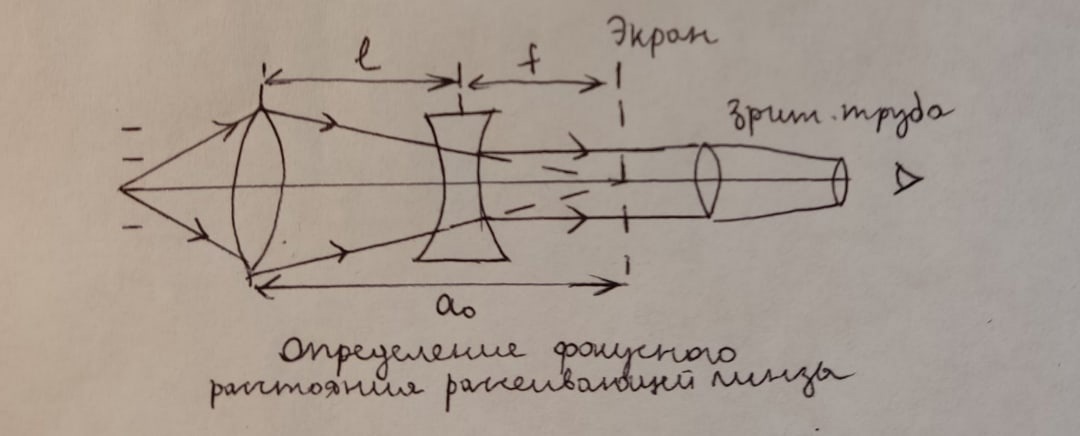 Экран
l
f
зрит. труба
a₀
Определение фокусного
расстояния рассеивающей линзы